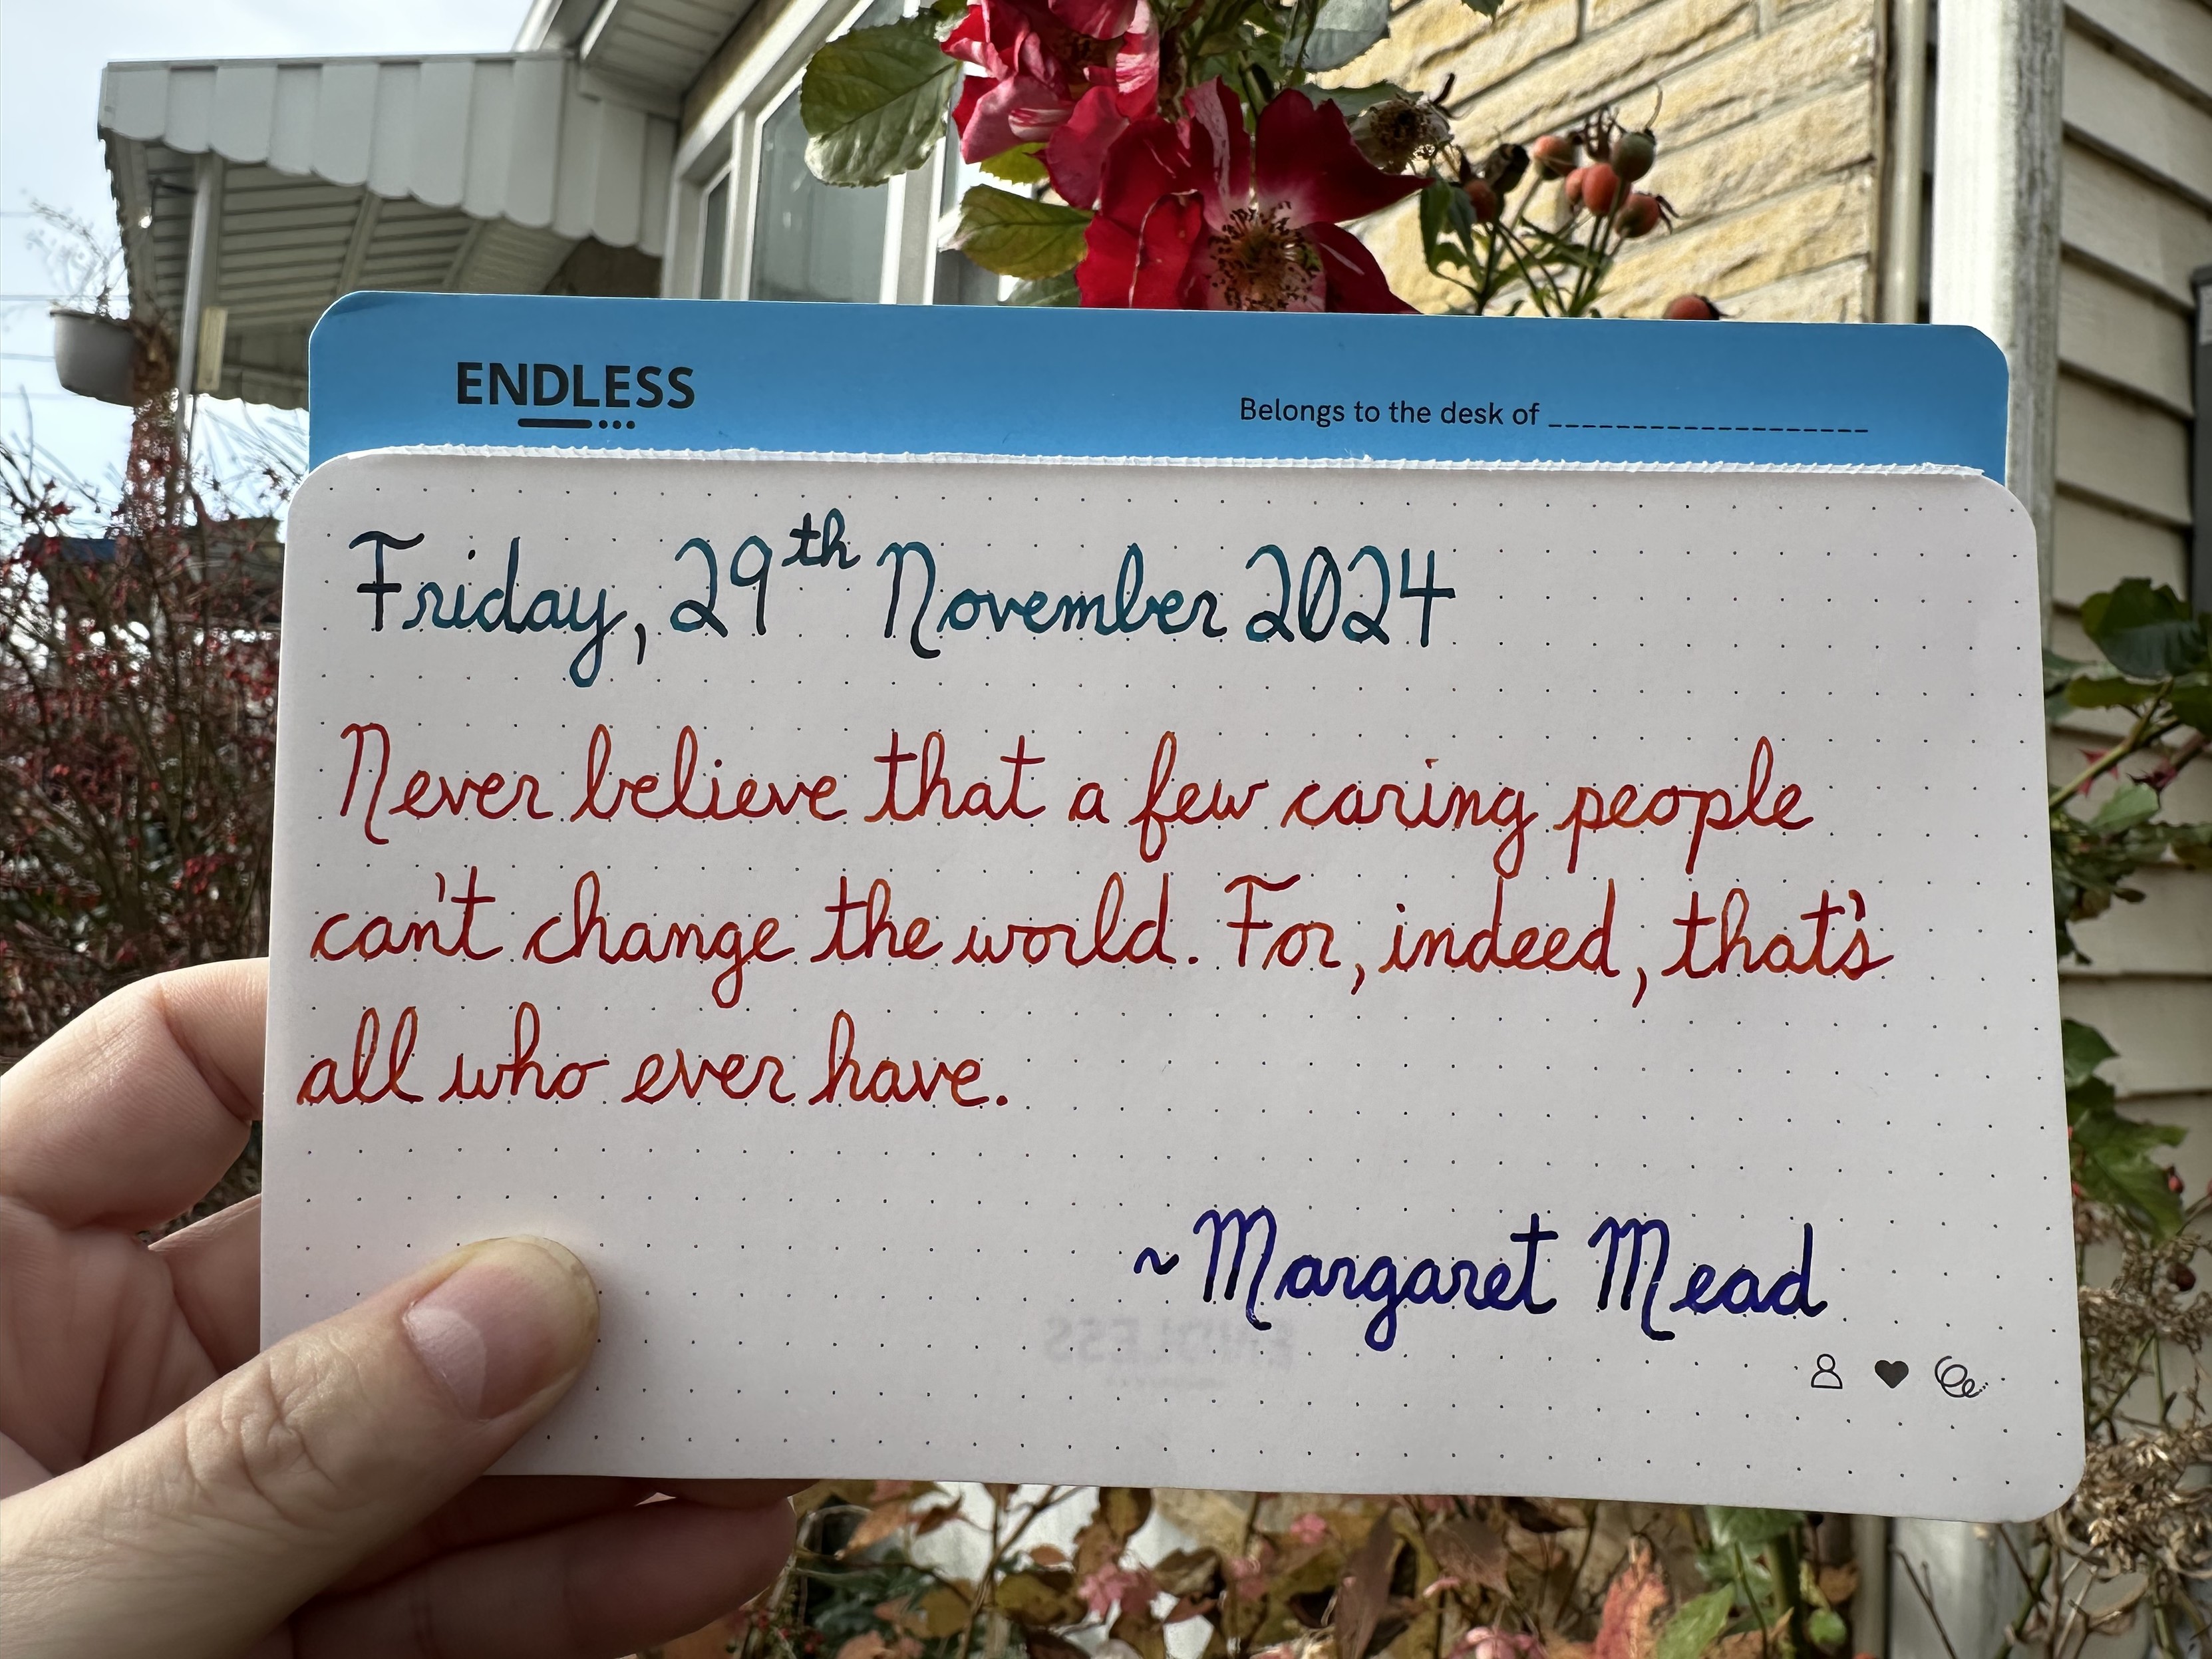 ENDLESS
Belongs to the desk of ____________________
Friday, 29th November 2024
Never believe that a few caring people
can't change the world. For, indeed, that's
all who ever have.
~Margaret Mead
ENDLESS